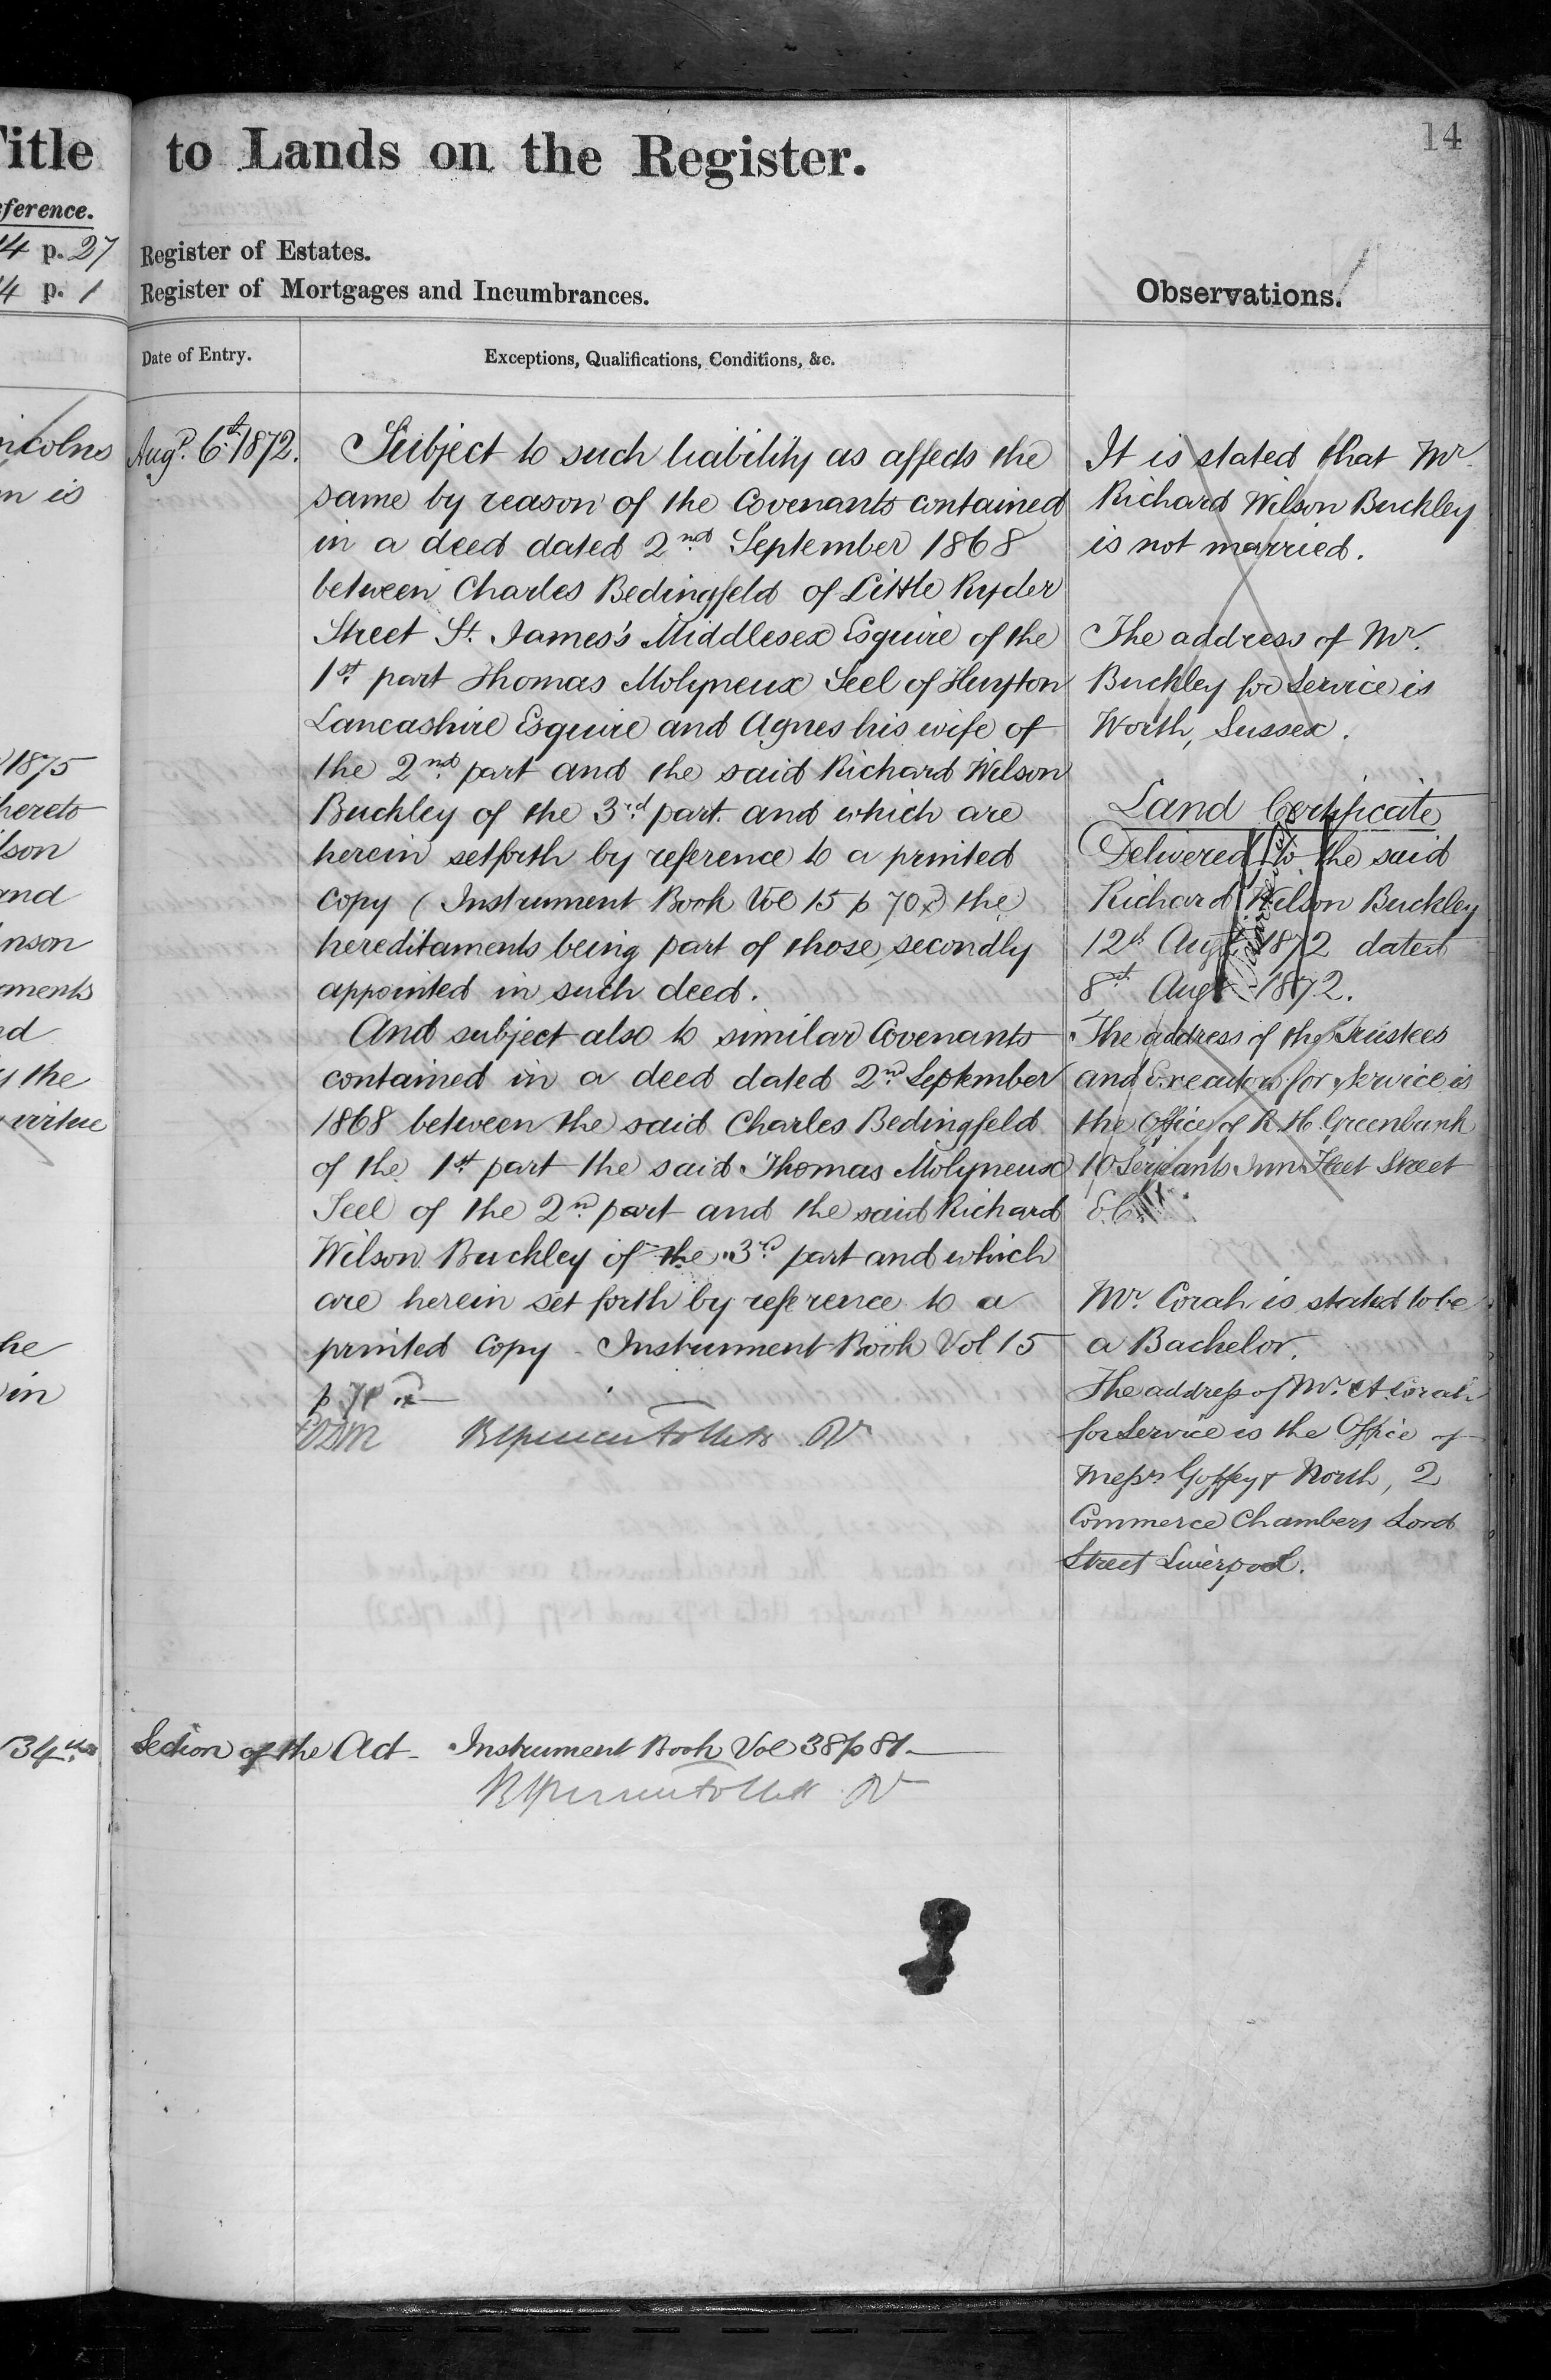 Title to Lands on the Register.
14
ference.
4 p. 27 Register of Estates.
4 p. 1 Register of Mortgages and Incumbrances.
Observations.
Date of Entry.
Exceptions, Qualifications, Conditions, &c.
ncolns
n is
1875
hereto
lson
and
nson
aments
nd
y the
virtue
he
in
Augt. 6th 1872.
Subject to such liability as affects the
same by reason of the Covenants contained
in a deed dated 2nd September 1868
between Charles Bedingfeld of Little Ryder
Street St. James's Middlesex Esquire of the
1st part Thomas Molyneux Seel of Huyton
Lancashire Esquire and Agnes his wife of
the 2nd part and the said Richard Wilson
Buckley of the 3rd part and which are
herein setforth by reference to a printed
copy (Instrument Book Vol 15 p 70) the
hereditaments being part of those secondly
appointed in such deed.
And subject also to similar Covenants
contained in a deed dated 2nd September
1868 between the said Charles Bedingfeld
of the 1st part the said Thomas Molyneux
Seel of the 2nd part and the said Richard
Wilson Buckley of the 3rd part and which
are herein set forth by reference to a
printed Copy - Instrument Book Vol. 15
p 70
34th Section of the Act - Instrument Book Vol 38 p 81
It is stated that Mr.
Richard Wilson Buckley
is not married.
The address of Mr.
Buckley for Service is
Worth, Sussex.
Land Certificate
Delivered to the said
Richard Wilson Buckley
12th Augt 1872 dated
8th Augt 1872.
The address of the Trustees
and Executors for Service is
the Office of R. H. Greenbank
10 Serjeants Inn Fleet Street
E.C.
Mr. Corah is stated to be
a Bachelor.
The address of Mr. A Corah
for Service is the Office of
Messrs Goffey & North, 2
Commerce Chambers Lord
Street Liverpool.